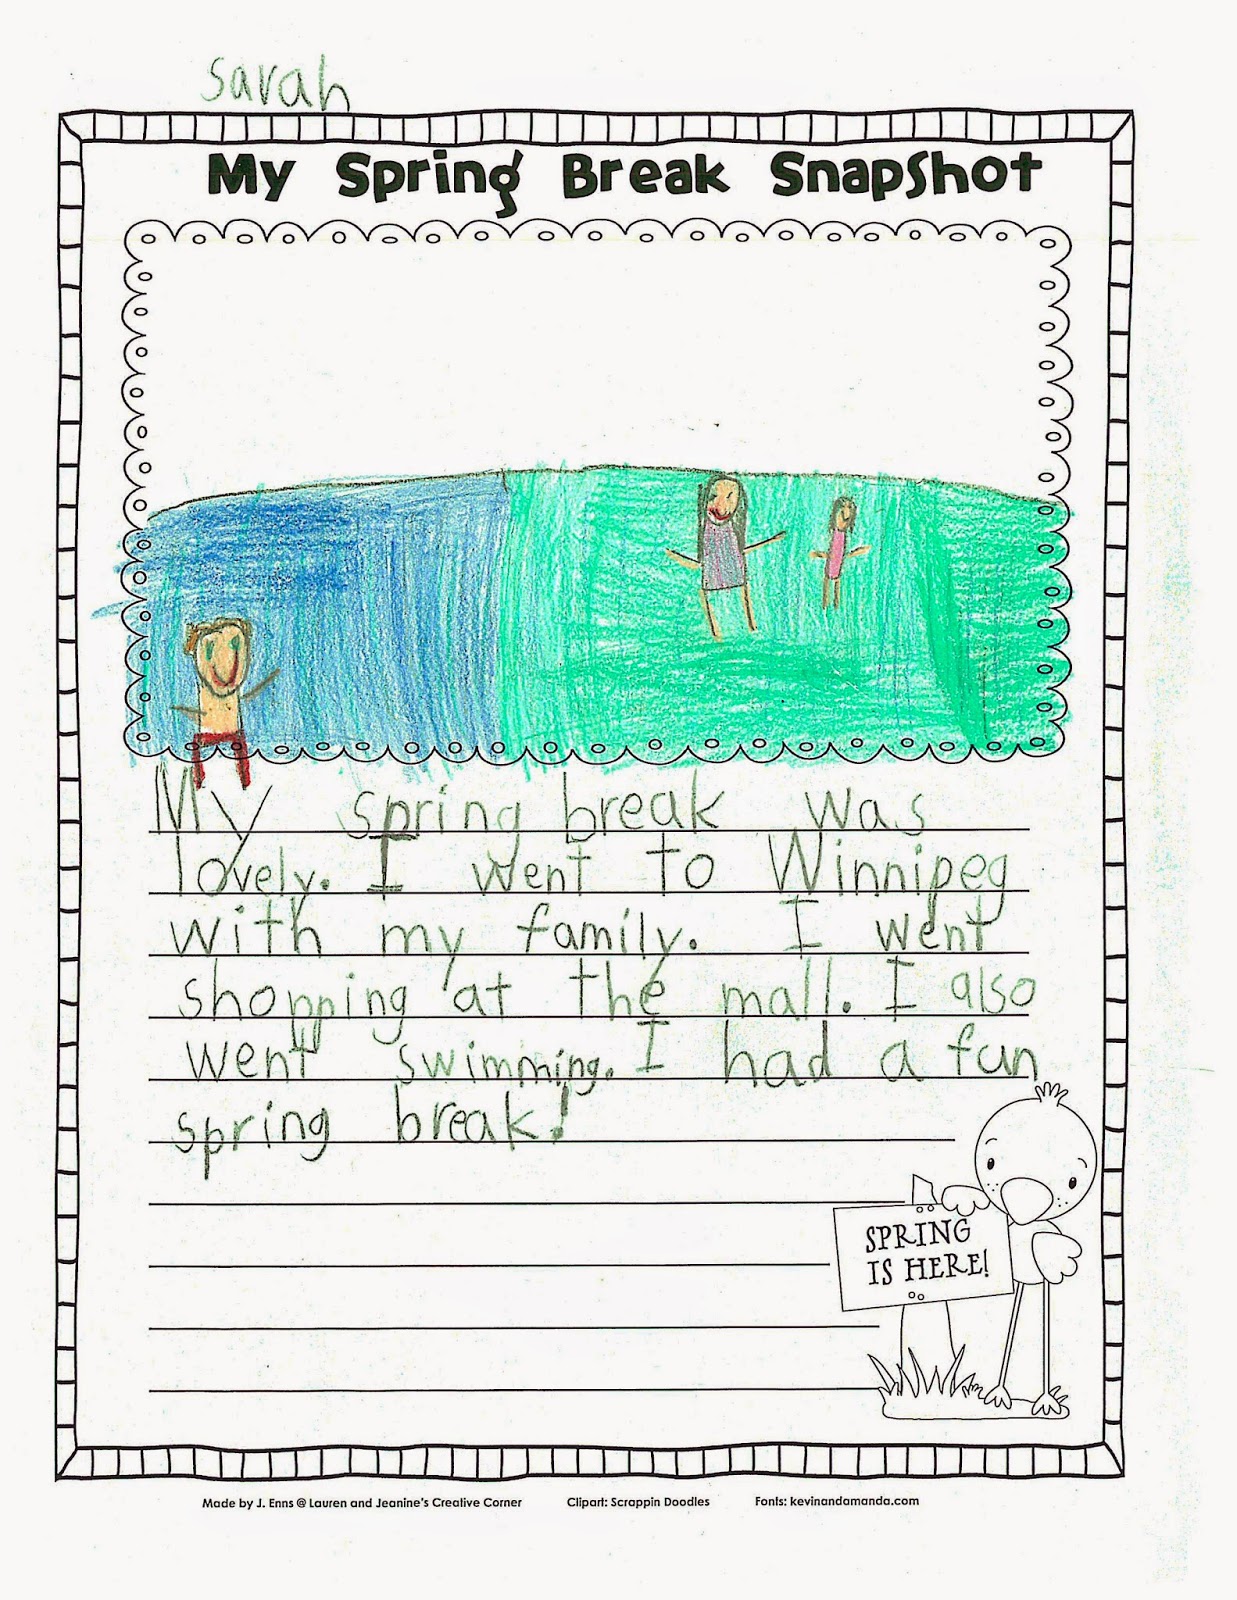 sarah
My Spring Break Snapshot
My spring break was
lovely. I went to Winnipeg
with my family. I went
shopping at the mall. I also
went swimming. I had a fun
spring break!
SPRING
IS HERE!
Made by J. Enns @ Lauren and Jeanine's Creative Corner Clipart: Scrappin Doodles Fonts: kevinandamanda.com